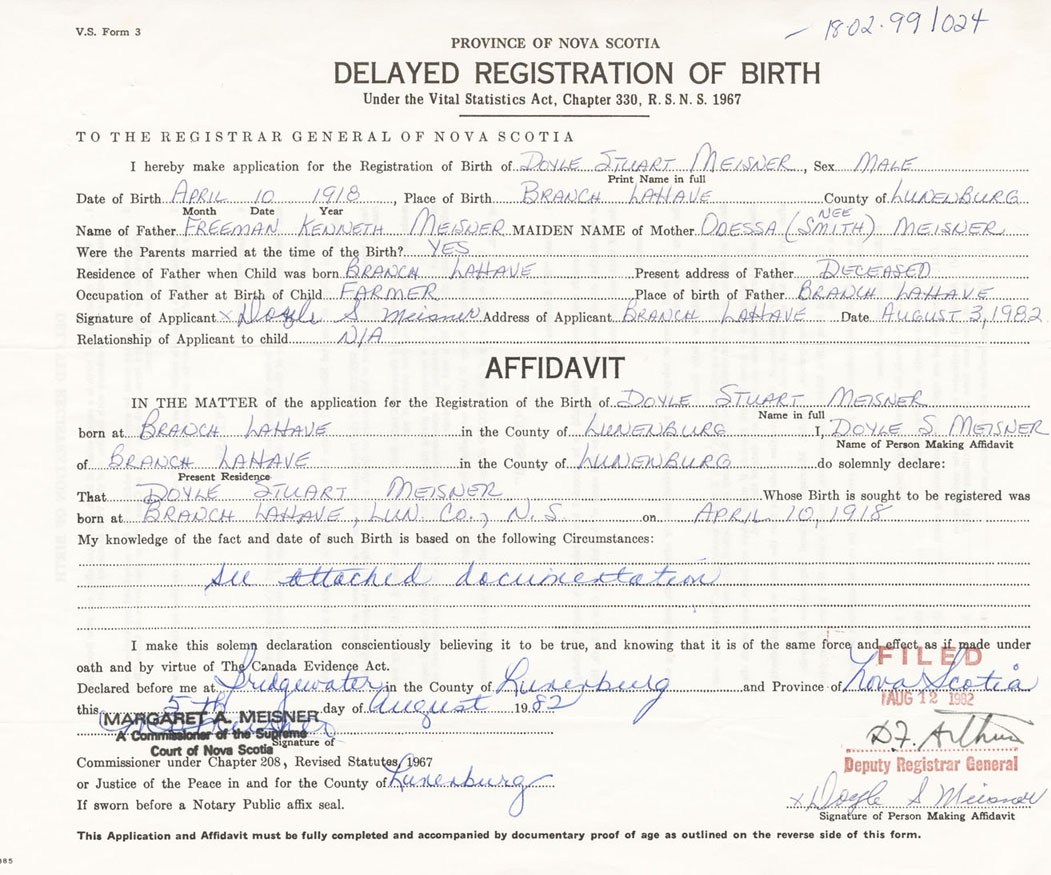 V.S. Form 3
1802·99/024
PROVINCE OF NOVA SCOTIA
DELAYED REGISTRATION OF BIRTH
Under the Vital Statistics Act, Chapter 330, R. S. N. S. 1967
TO THE REGISTRAR GENERAL OF NOVA SCOTIA
I hereby make application for the Registration of Birth of DOYLE STUART MEISNER, Sex MALE
Print Name in full
Date of Birth APRIL 10 1918, Place of Birth BRANCH LAHAVE County of LUNENBURG
Month Date Year
Name of Father FREEMAN KENNETH MEISNER MAIDEN NAME of Mother ODESSA (NEE SMITH) MEISNER
Were the Parents married at the time of the Birth? YES
Residence of Father when Child was born BRANCH LAHAVE Present address of Father DECEASED
Occupation of Father at Birth of Child FARMER Place of birth of Father BRANCH LAHAVE
Signature of Applicant x Doyle S Meisner Address of Applicant BRANCH LAHAVE Date AUGUST 3, 1982
Relationship of Applicant to child N/A
AFFIDAVIT
IN THE MATTER of the application for the Registration of the Birth of DOYLE STUART MEISNER
Name in full
born at BRANCH LAHAVE in the County of LUNENBURG I, DOYLE S. MEISNER
Name of Person Making Affidavit
of BRANCH LAHAVE in the County of LUNENBURG do solemnly declare:
Present Residence
That DOYLE STUART MEISNER Whose Birth is sought to be registered was
born at BRANCH LAHAVE, LUN. CO., N.S. on APRIL 10, 1918
My knowledge of the fact and date of such Birth is based on the following Circumstances:
See attached documentation
I make this solemn declaration conscientiously believing it to be true, and knowing that it is of the same force and effect as if made under
oath and by virtue of The Canada Evidence Act.
FILED
Declared before me at Bridgewater in the County of Lunenburg and Province of Nova Scotia
AUG 12 1982
this 5th day of August 1982
MARGARET A. MEISNER
A Commissioner of the Supreme
Court of Nova Scotia
Signature of
D.F. Arthur
Deputy Registrar General
Commissioner under Chapter 208, Revised Statutes, 1967
or Justice of the Peace in and for the County of Lunenburg
x Doyle S Meisner
If sworn before a Notary Public affix seal.
Signature of Person Making Affidavit
This Application and Affidavit must be fully completed and accompanied by documentary proof of age as outlined on the reverse side of this form.